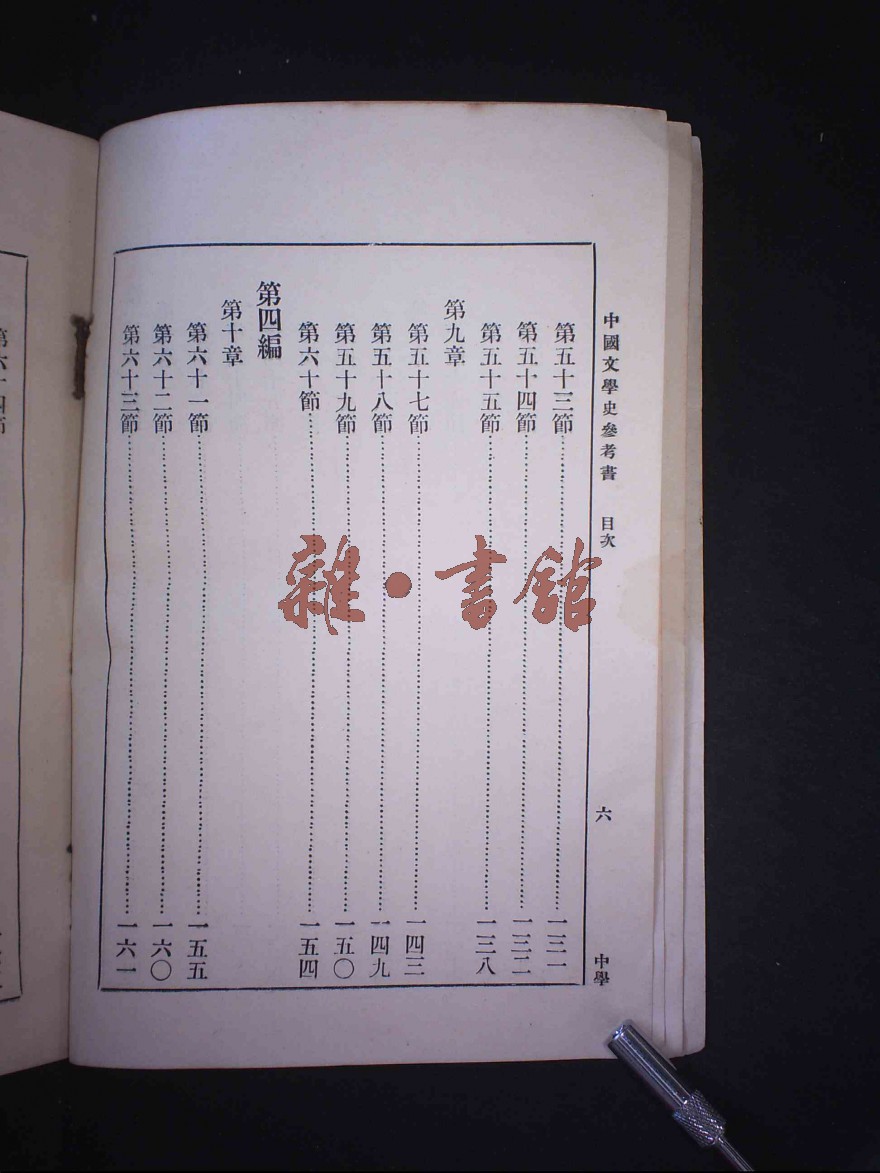 中國文學史參考書 目次 六 中學
第五十三節……一三一
第五十四節……一三二
第五十五節……一三八
第九章
第五十七節……一四三
第五十八節……一四九
第五十九節……一五〇
第六十節……一五四
第四編
第十章
第六十一節……一五五
第六十二節……一六〇
第六十三節……一六一
第六十四節
雜·書館